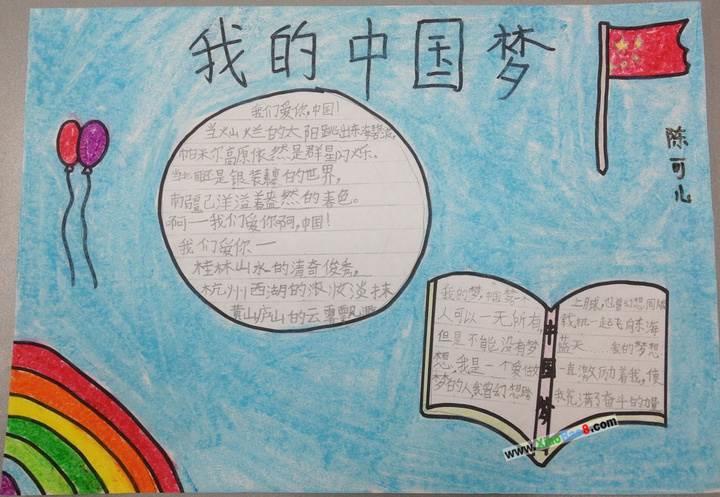 我的中国梦
陈可儿
我们爱你,中国!
当灿烂的太阳跳出东海碧波,
帕米尔高原依然是群星闪烁。
当北疆还是银装素裹的世界,
南疆已洋溢着盎然的春色。
啊——我们爱你啊,中国!
我们爱你——
桂林山水的清奇俊秀,
杭州西湖的浓妆淡抹
黄山庐山的云雾飘渺
我的梦,中国梦一个
人可以一无所有,
但是不能没有梦
想,我是一个爱做
梦的人,我曾幻想踏
中国梦
上月球,也曾幻想同
战机一起飞向东海
蓝天……我的梦想
一直激励着我,使
我充满了奋斗的力量
www.XiaoBao8.com